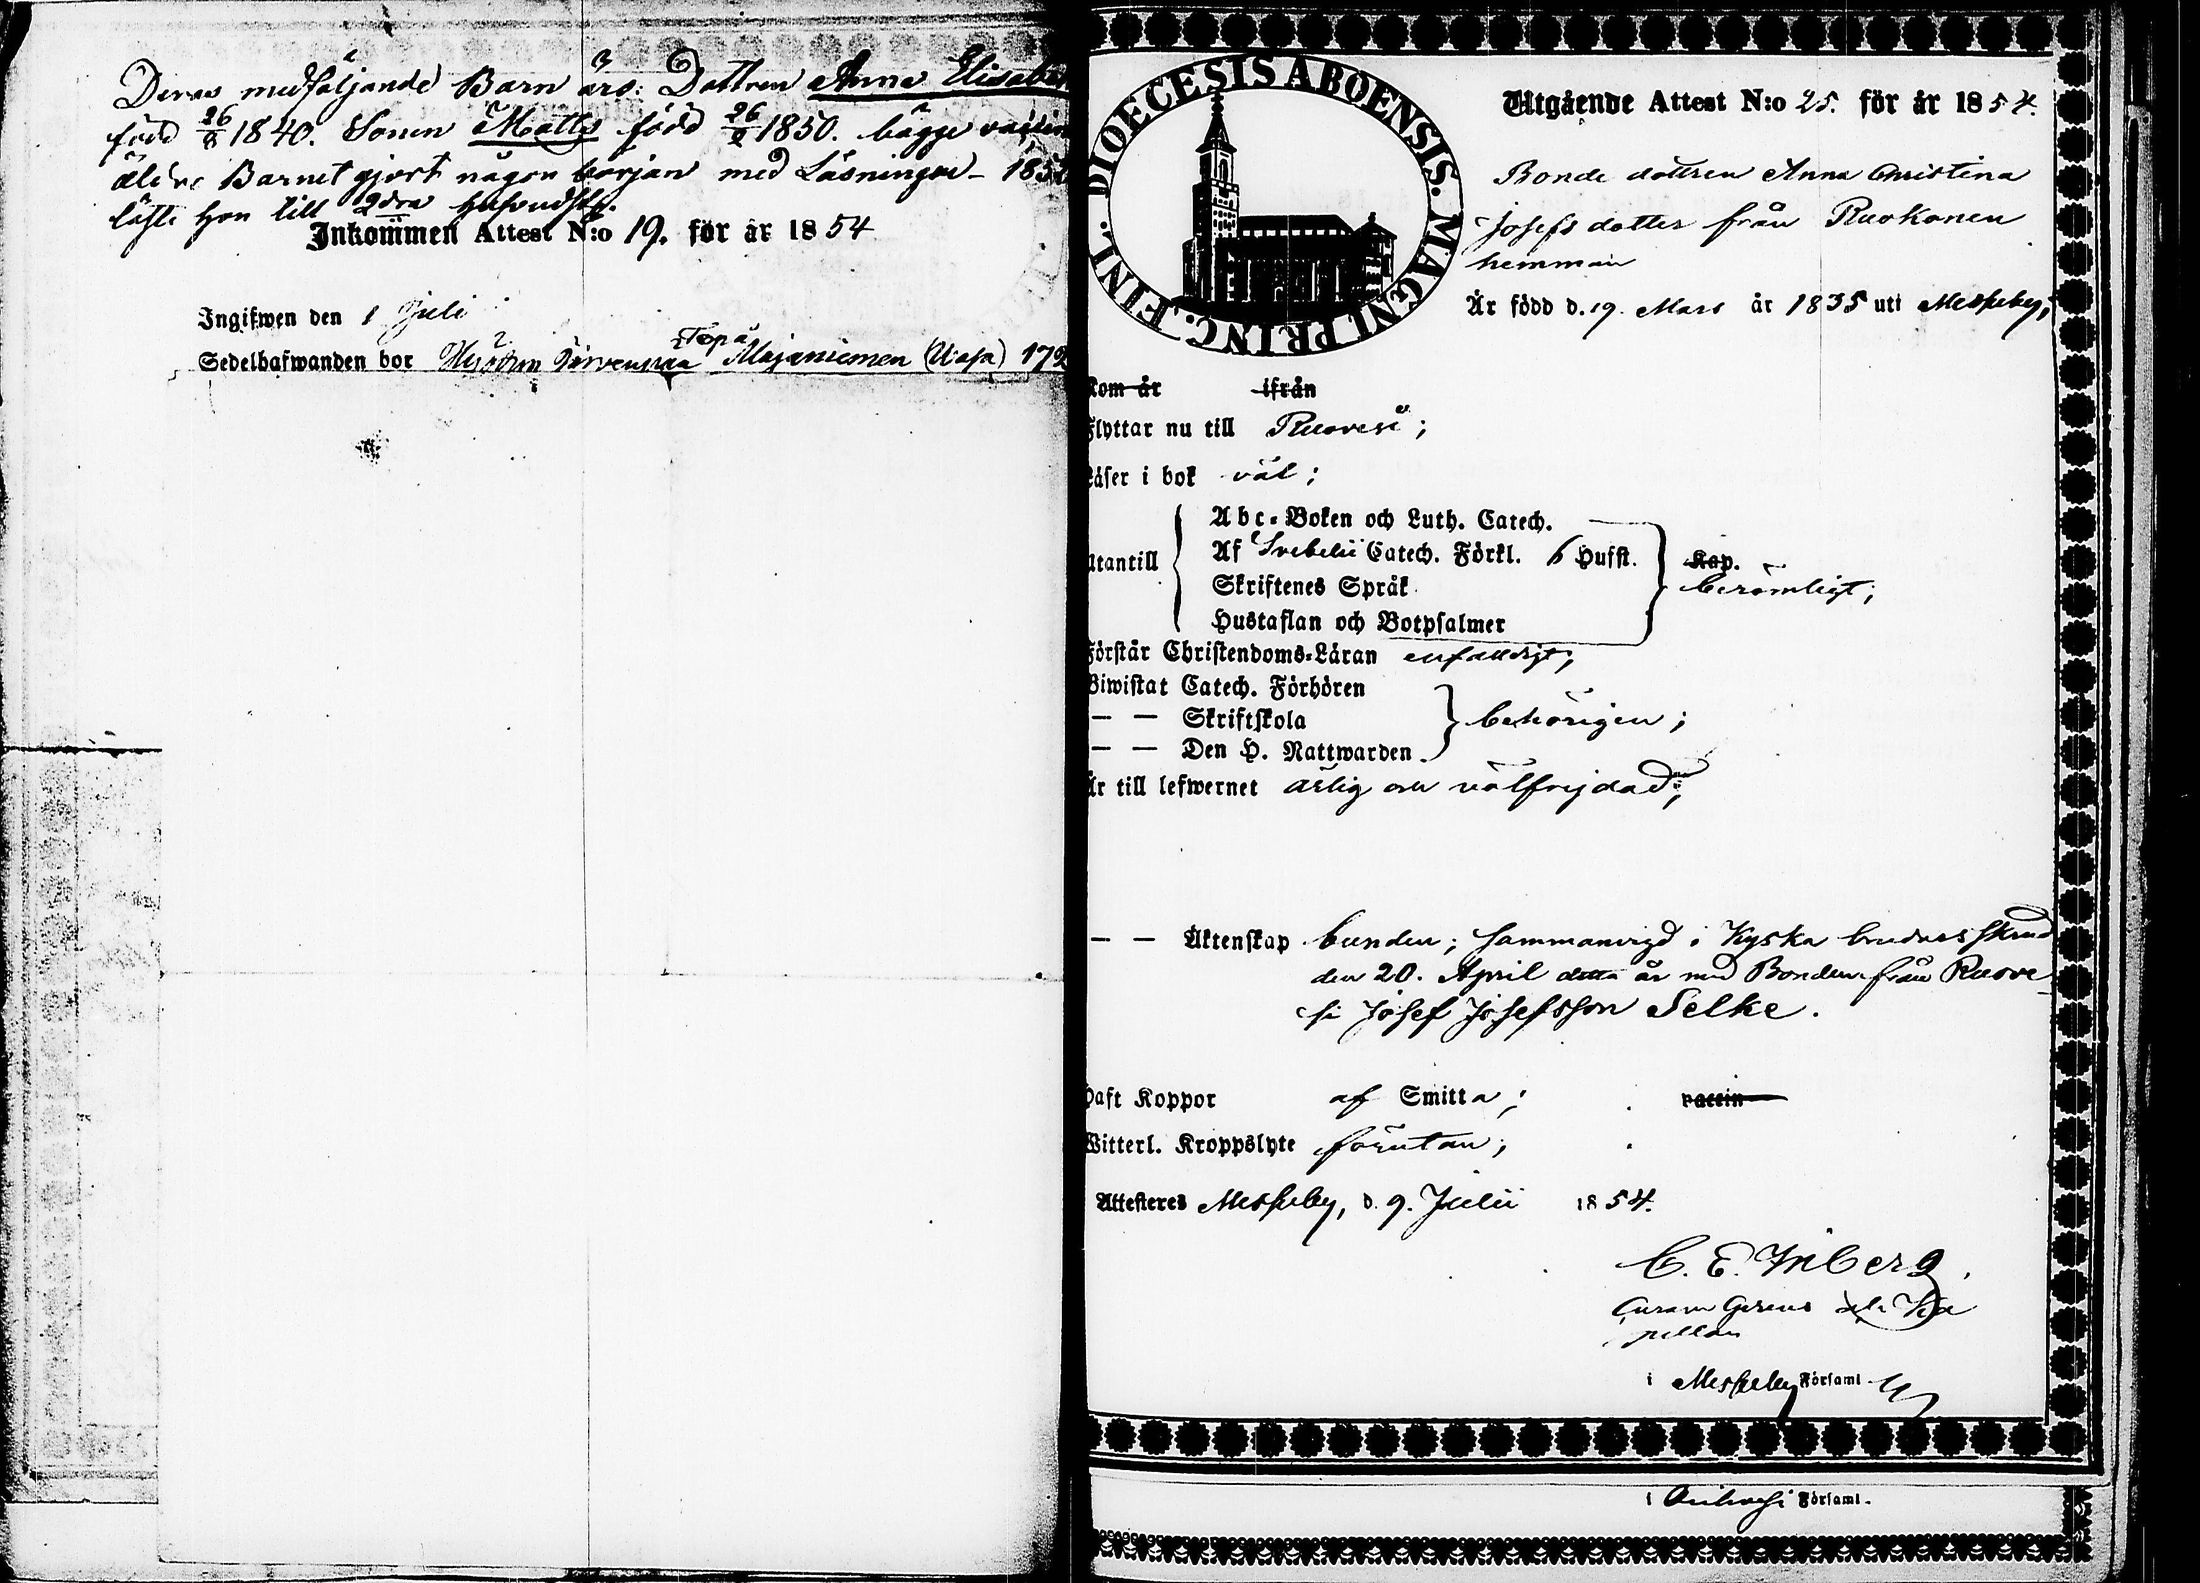 Deras medföljande Barn äro: Dottren Anna Elisabet
född 26/8 1840. Sonen Matts född 26/2 1850. bägge
äldre Barnet gjort någon början med Läsningen - 185
läste hon till 2dra hufvudst.
Inkommen Attest N:o 19. för år 1854
Ingifwen den 1 Juli
Topa
Sedelhafwanden bor Majaniemen
DIOECESIS ABOENSIS. MAGNI PRINC. FINL.
Utgående Attest N:o 25. för år 1854.
Bonde dottren Anna Christina
Josefs dotter från Ruokonen
hemman
Är född d. 19. Mars år 1835 uti Messuby;
kom år ifrån
Flyttar nu till Ruovesi;
Läser i bok väl;
Utantill
Abc-Boken och Luth. Catech.
Af Svebelii Catech. Förkl. 6 Hufst. Kap.
Skriftenes Språk
berömligt;
Hustaflan och Botpsalmer
Förstår Christendoms-Läran enfaldigt;
Biwistat Catech. Förhören
— — Skriftskola behörigen;
— — Den H. Nattwarden
Är till lefwernet ärlig och välfrejdad;
— — Äktenskap bunden; sammanvigd i Kyska brudarskrud
den 20. April detta år med Bonden från Ruove-
si Josef Josefsson Selke.
Haft Koppor af Smitta; vaccin
Witterl. Kroppslyte förutan;
Attesteres Messuby, d. 9. Julii 1854.
C. E. Inberg.
Curam Gerens Ka
pellan
i Messuby Församl.
i Församl.